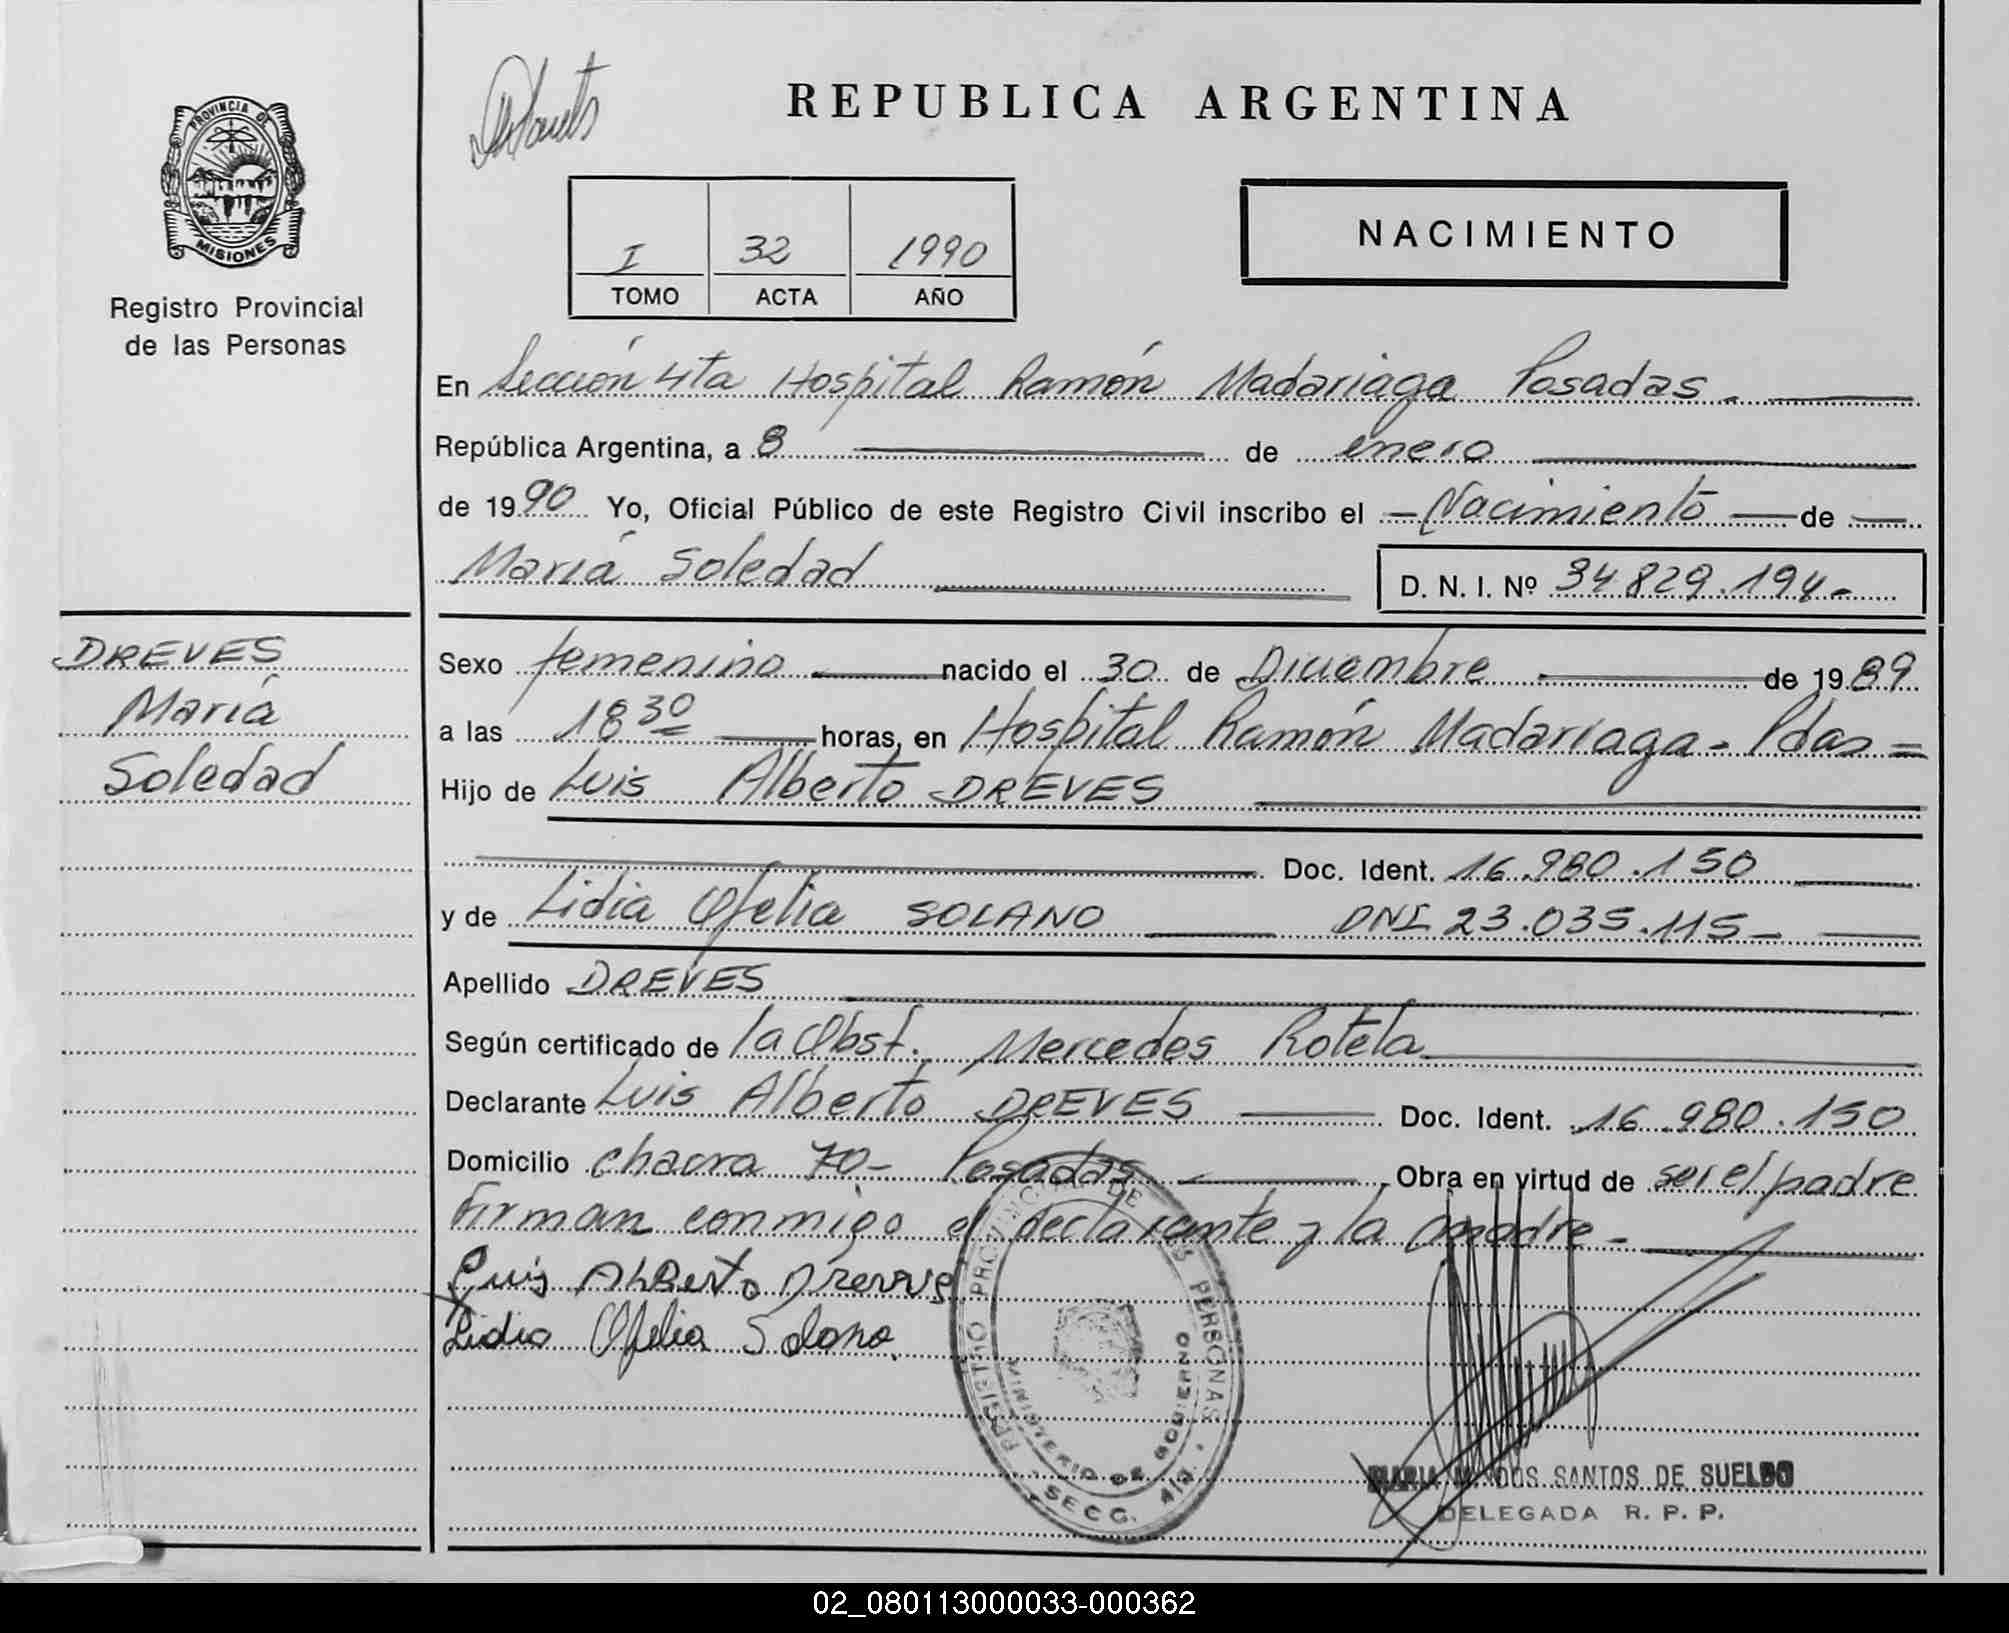 PROVINCIA DE
MISIONES
Registro Provincial
de las Personas
REPUBLICA ARGENTINA
I 32 1990
TOMO ACTA AÑO
NACIMIENTO
En Sección 4ta Hospital Ramón Madariaga Posadas.
República Argentina, a 8 de enero
de 1990 Yo, Oficial Público de este Registro Civil inscribo el Nacimiento de
María Soledad D. N. I. Nº 34.829.194-
DREVES
María
Soledad
Sexo femenino nacido el 30 de Diciembre de 1989
a las 18 30 horas, en Hospital Ramón Madariaga - Pdas =
Hijo de Luis Alberto DREVES
Doc. Ident. 16.980.150
y de Lidia Ofelia SOLANO DNI 23.035.115-
Apellido DREVES
Según certificado de la Obst. Mercedes Rotela
Declarante Luis Alberto DREVES Doc. Ident. 16.980.150
Domicilio chacra 70- Posadas Obra en virtud de ser el padre
Firman conmigo el declarante y la madre -
Luis Alberto Dreves
Lidia Ofelia Solano.
REGISTRO PROVINCIAL DE LAS PERSONAS
MINISTERIO DE GOBIERNO
SECC. 4ta.
MARIA M. DOS SANTOS DE SUELDO
DELEGADA R. P. P.
02_080113000033-000362